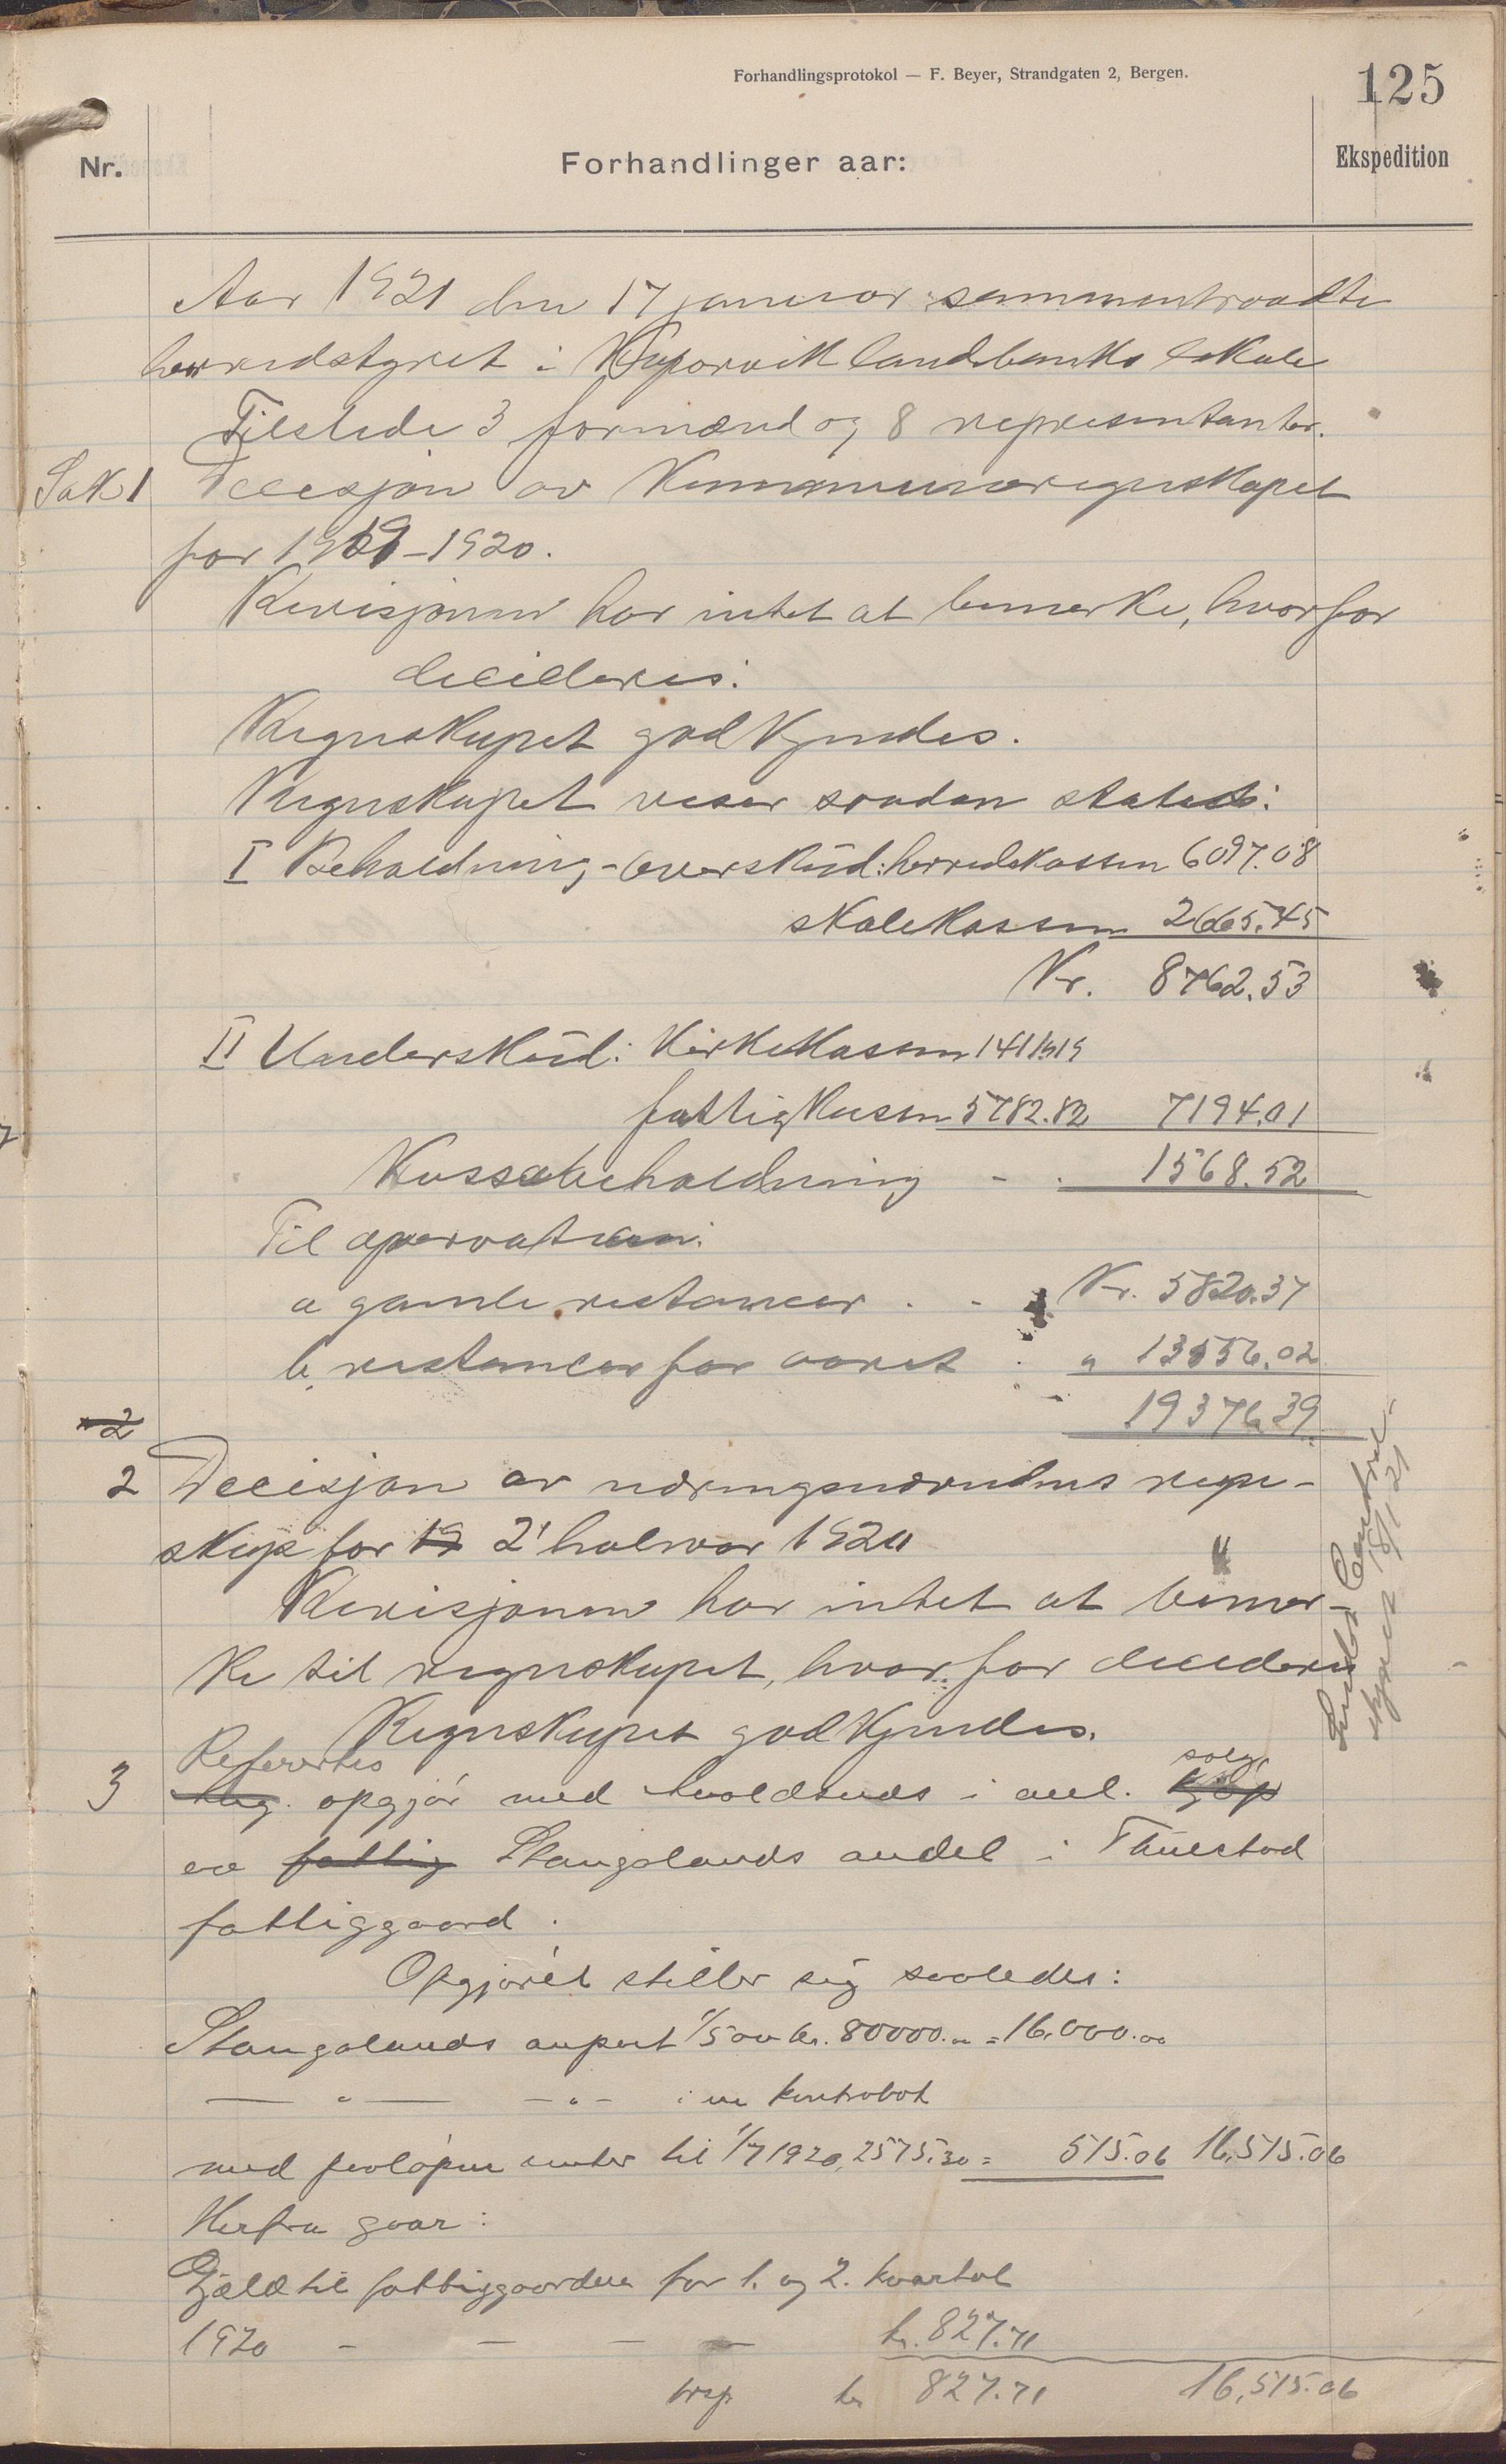 Forhandlingsprotokol — F. Beyer, Strandgaten 2, Bergen.
125
Nr.
Forhandlinger aar:
Ekspedition
Aar 1921 den 17 januar sammentraadte
herredstyret i Kopervik landsbanks lokale
Tilstede 3 formænd og 8 representanter.
Sak 1 Decisjon av Kommuneregnskapet
for 1919-1920.
Revisjonen har intet at bemerke, hvorfor
decideres:
Regnskapet godkjendes.
Regnskapet viser saadan status:
I Beholdning, - overskud: herredskassen 6097.08
skolekassen 2665.45
Kr. 8762.53
II Underskud: Kirkekassen 1411.19
fattigkassen 5782.82 7194.01
Kassabeholdning - . 1568.52
Til
a gamle restancer . - Kr. 5820.37
b. restancer for aaret . " 13556.02
19376.39
2
2 Decisjon av næringsnævndens regn-
skap for 19 2' halvaar 1920
Revisjonen har intet at bemer-
ke til regnskapet, hvorfor decideres
Regnskapet godkjendes.
Refertes
3 opgjør med Avaldsnes i anl. kjøp salg
av fattig Stangalands andel i Thuestad
fattiggaard.
Opgjøret stiller sig saaledes:
Stangalands anpart 1/5 av kr. 80000.00 = 16.000.00
— " — - " - i en kontrabok
med paaløpne renter til 1/7 1920, 2575.30 = 515.06 16,515.06
Herfra gaar:
Gjæld til fattiggaarden for 1. og 2. kvartal
1920 - - - - kr. 827.71
trsp kr 827.71 16,515.06
18/1 21